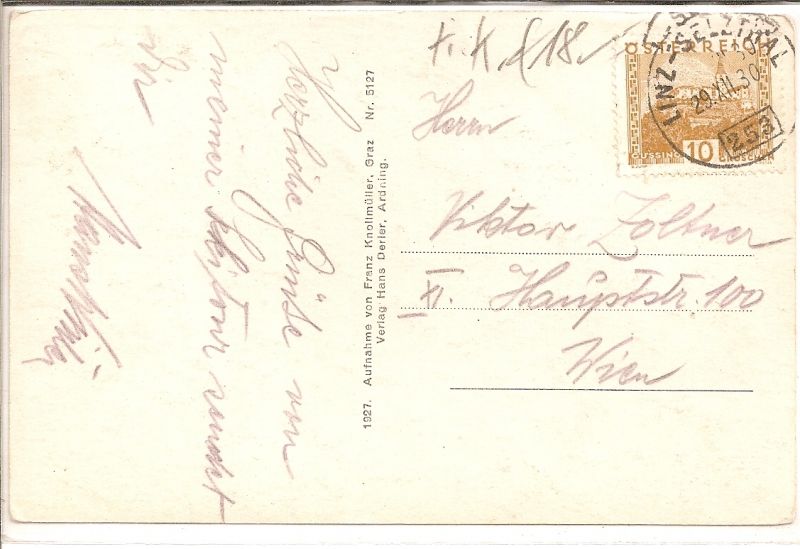 Herzliche Grüße von
meiner Skitour sendet
Dir
1927. Aufnahme von Franz Knollmüller, Graz Nr. 5127
Verlag Hans Derler, Ardning.
ÖSTERREICH
GÜSSING 10 GROSCHEN
LINZ-SELZTHAL
29.XII.30
253
Herrn
Viktor Zoltner
XI. Hauptstr. 100
Wien